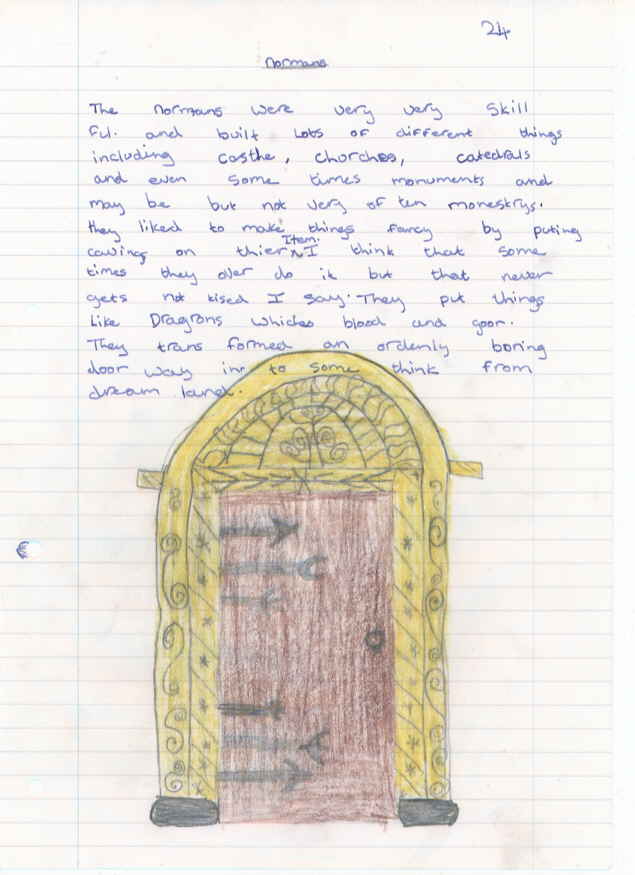 24
Normans
The normans were very very skill
ful. and built lots of different things
including casthe, churches, catedrals
and even some times monuments and
may be but not very of ten monestrys.
they liked to make things fancy by puting
caving on thier Item. I think that some
times they over do it but that never
gets not kised I say. They put things
like Dragons whiches blood and goor.
They trans formed an ordenly boring
door way inn to some think from
dream land.